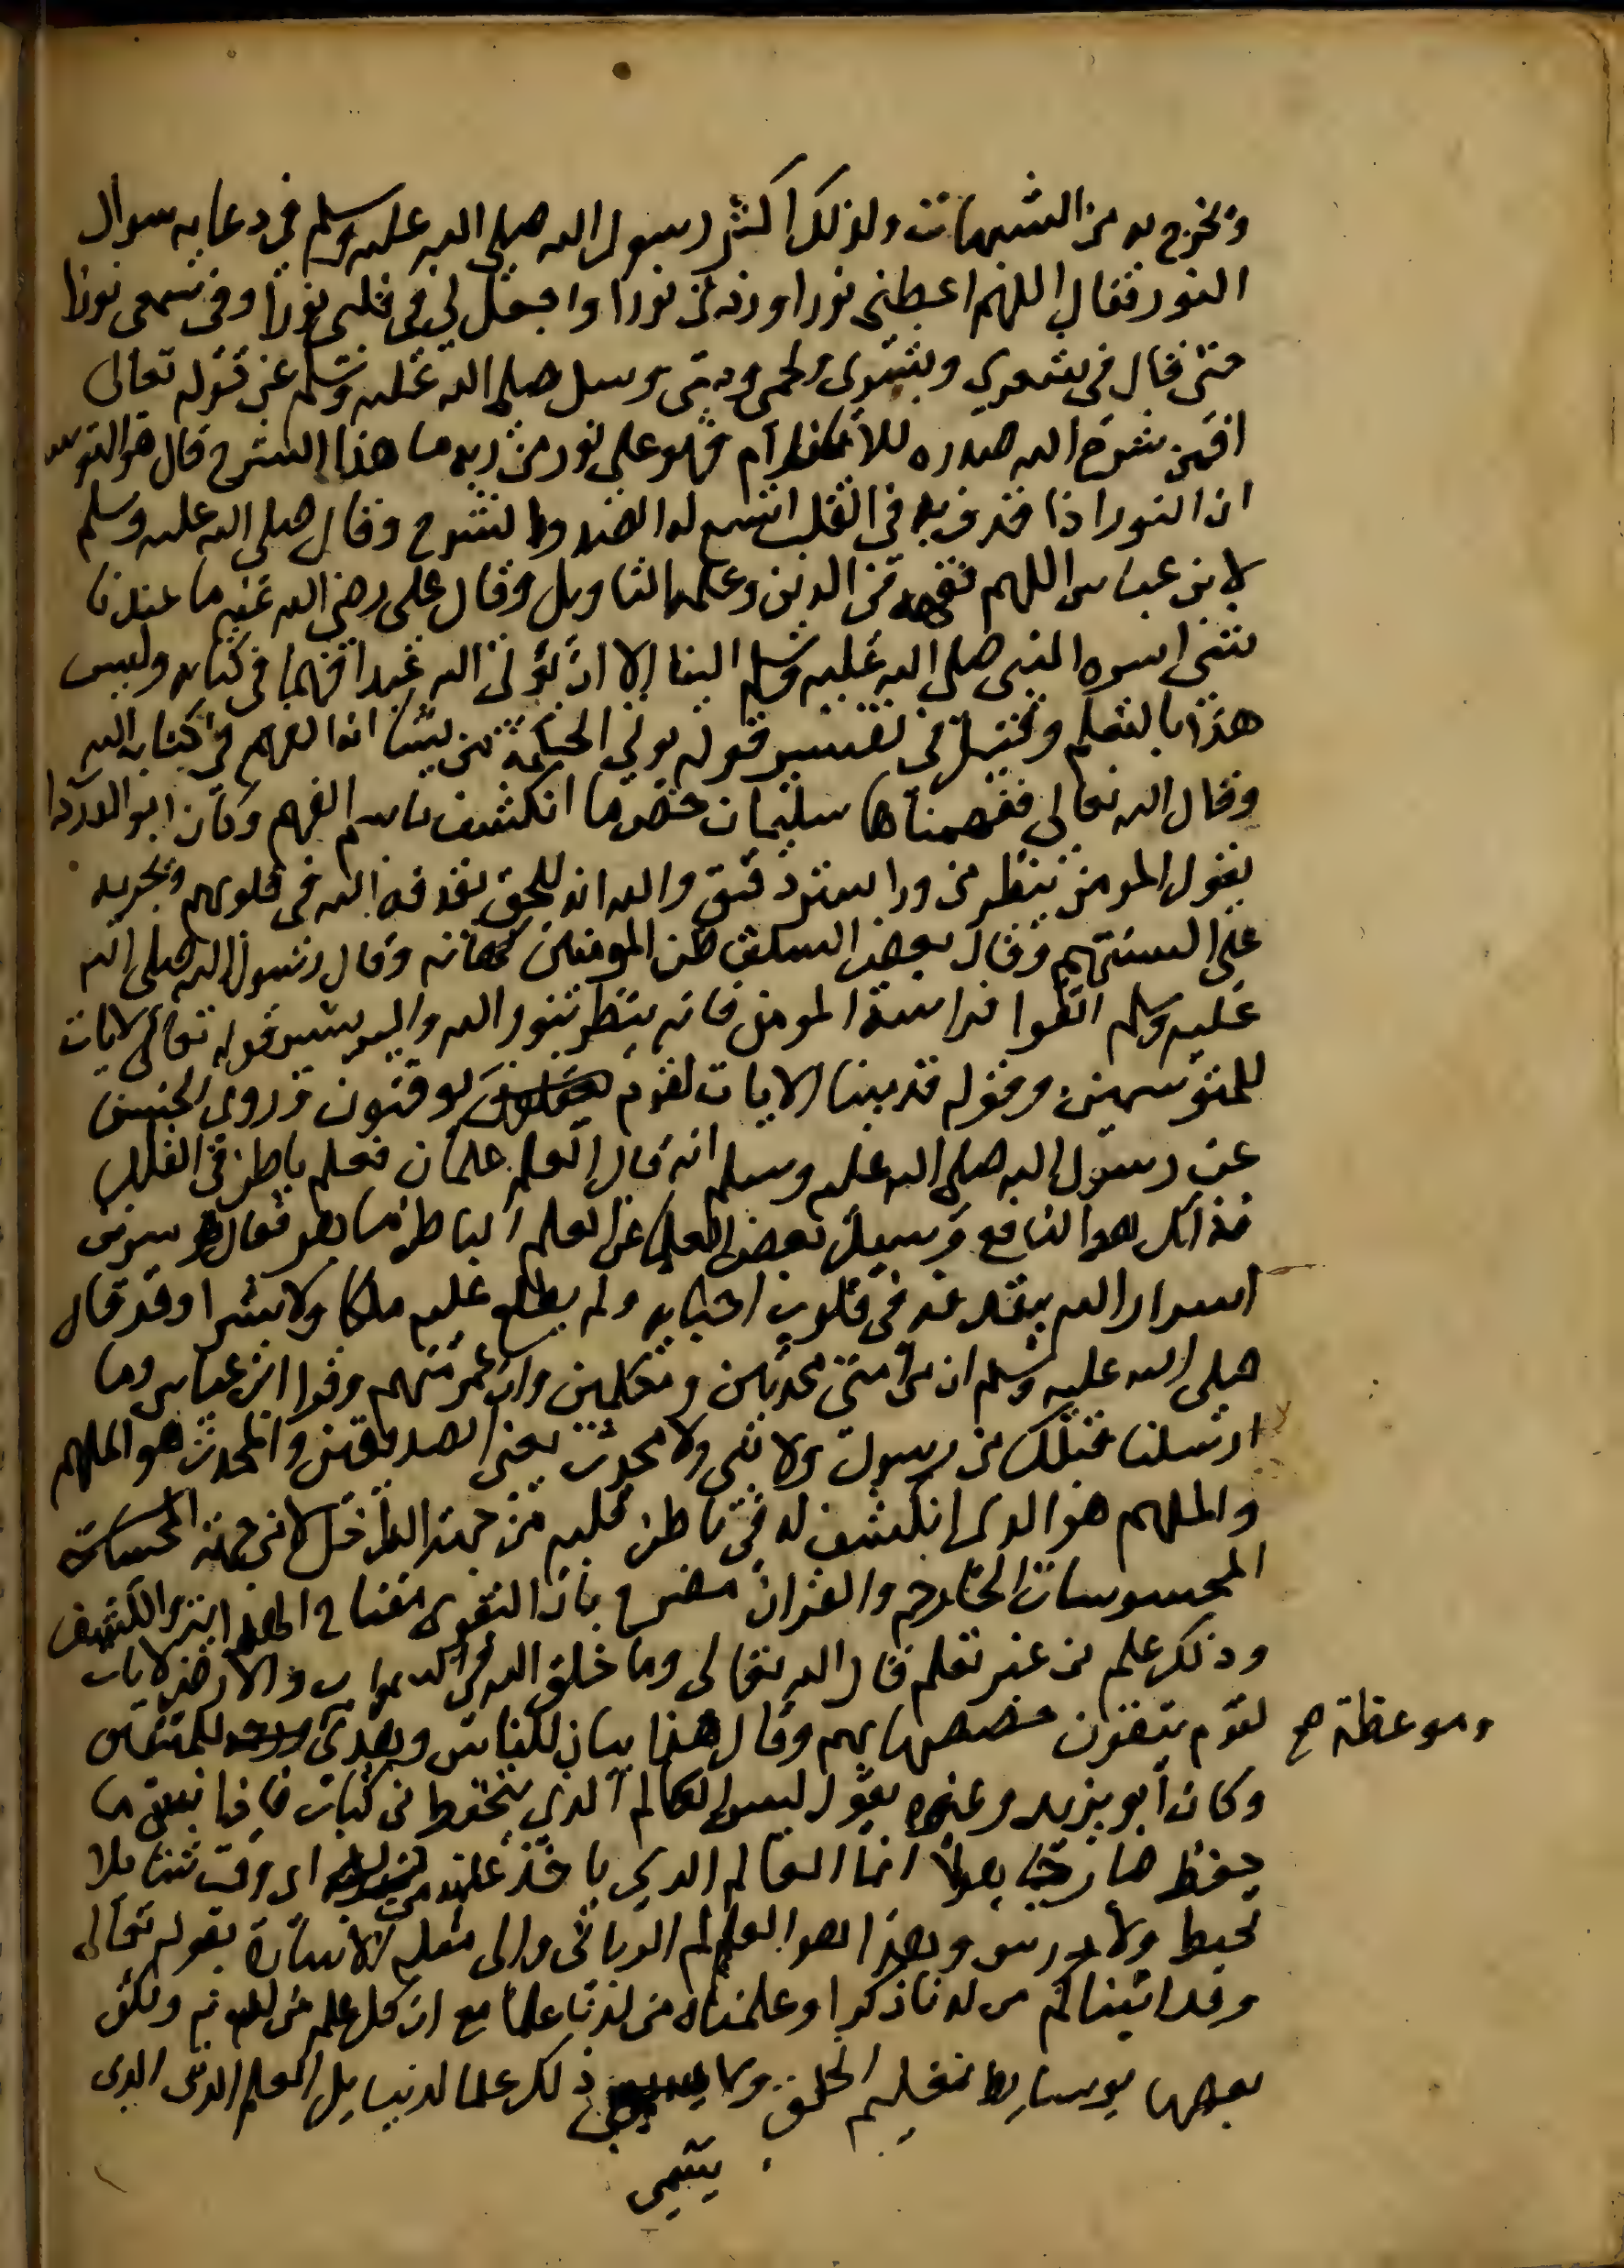 ويخرج به من الشبهات ولذلك اكثر رسول الله صلى الله عليه وسلم في دعايه سوال
النور فقال اللهم اعطني نورا وزدني نورا واجعل لي في قلبي نورا وفي سمعي نورا
حتى قال في شعري وبشري ولحمي ودمي وسيل صلى الله عليه وسلم عن قوله تعالى
افمن شرح الله صدره للاسلام فهو على نور من ربه ما هذا الشرح قال هو التوسعه
ان النور اذا قذف به في القلب اتسع له الصدر وانشرح وقال صلى الله عليه وسلم
لابن عباس اللهم فقهه في الدين وعلمه التاويل وقال علي رضي الله عنه ما عندنا
شي اسره النبي صلى الله عليه وسلم الينا الا ان يوتي الله عبدا فهما في كتابه وليس
هذا بالتعلم وقيل في تفسير قوله يوتي الحكمة من يشا انه الفهم في كتاب الله
وقال الله تعالى ففهمناها سليمان خص ما انكشف باسم الفهم وكان ابو الدردا
يقول المومن ينظر من ورا ستر رقيق والله انه للحق يقذفه الله في قلوبهم ويجريه
على السنتهم وقال بعض السلف ظن المومنين كهانه وقال رسول الله صلى الله
عليه وسلم اتقوا فراسة المومن فانه ينظر بنور الله واليه يشير قوله تعالى لايات
للمتوسمين وقوله قد بينا الايات لقوم يوقنون وروى الحسن
عن رسول الله صلى الله عليه وسلم انه قال العلم علمان فعلم باطن في القلب
فذلك هو النافع وسيل بعض العلما عن العلم الباطن ما هو فقال هو سر من
اسرار الله يقذفه في قلوب احبابه ولم يطلع عليه ملكا ولا بشرا وقد قال
صلى الله عليه وسلم ان من امتي محدثين ومكلمين وان عمر منهم وقرا ابن عباس وما
ارسلنا قبلك من رسول ولا نبي ولا محدث يعني الصديقين والمحدث هو الملهم
والملهم هو الذي انكشف له في باطن قلبه من جهة الداخل لا من جهة المحسات
المحسوسات الخارجه والقران مصرح بان التقوى مفتاح الهدايه والكشف
وذلك علم من غير تعلم قال الله تعالى وما خلق الله في السموات والارض لايات
لقوم يتقون خصصها بهم وقال هذا بيان للناس وهدى للمتقين
وموعظة صح
وكان ابو يزيد وغيره يقول ليس العالم الذي يحفظ من كتاب فاذا نسي ما
حفظ صار جاهلا انما العالم الذي ياخذ علمه من ربه اي وقت شا بلا
تحفظ ولا درس وهذا هو العالم الرباني والى مثله الاشارة بقوله تعالى
وقد اتيناك من لدنا ذكرا وعلمناه من لدنا علما مع ان كل علم من لدنه ولكن
بعضها بوسايط تعليم الخلق ولا يسمى ذلك علما لدنيا بل العلم الدني الذي
يسمى